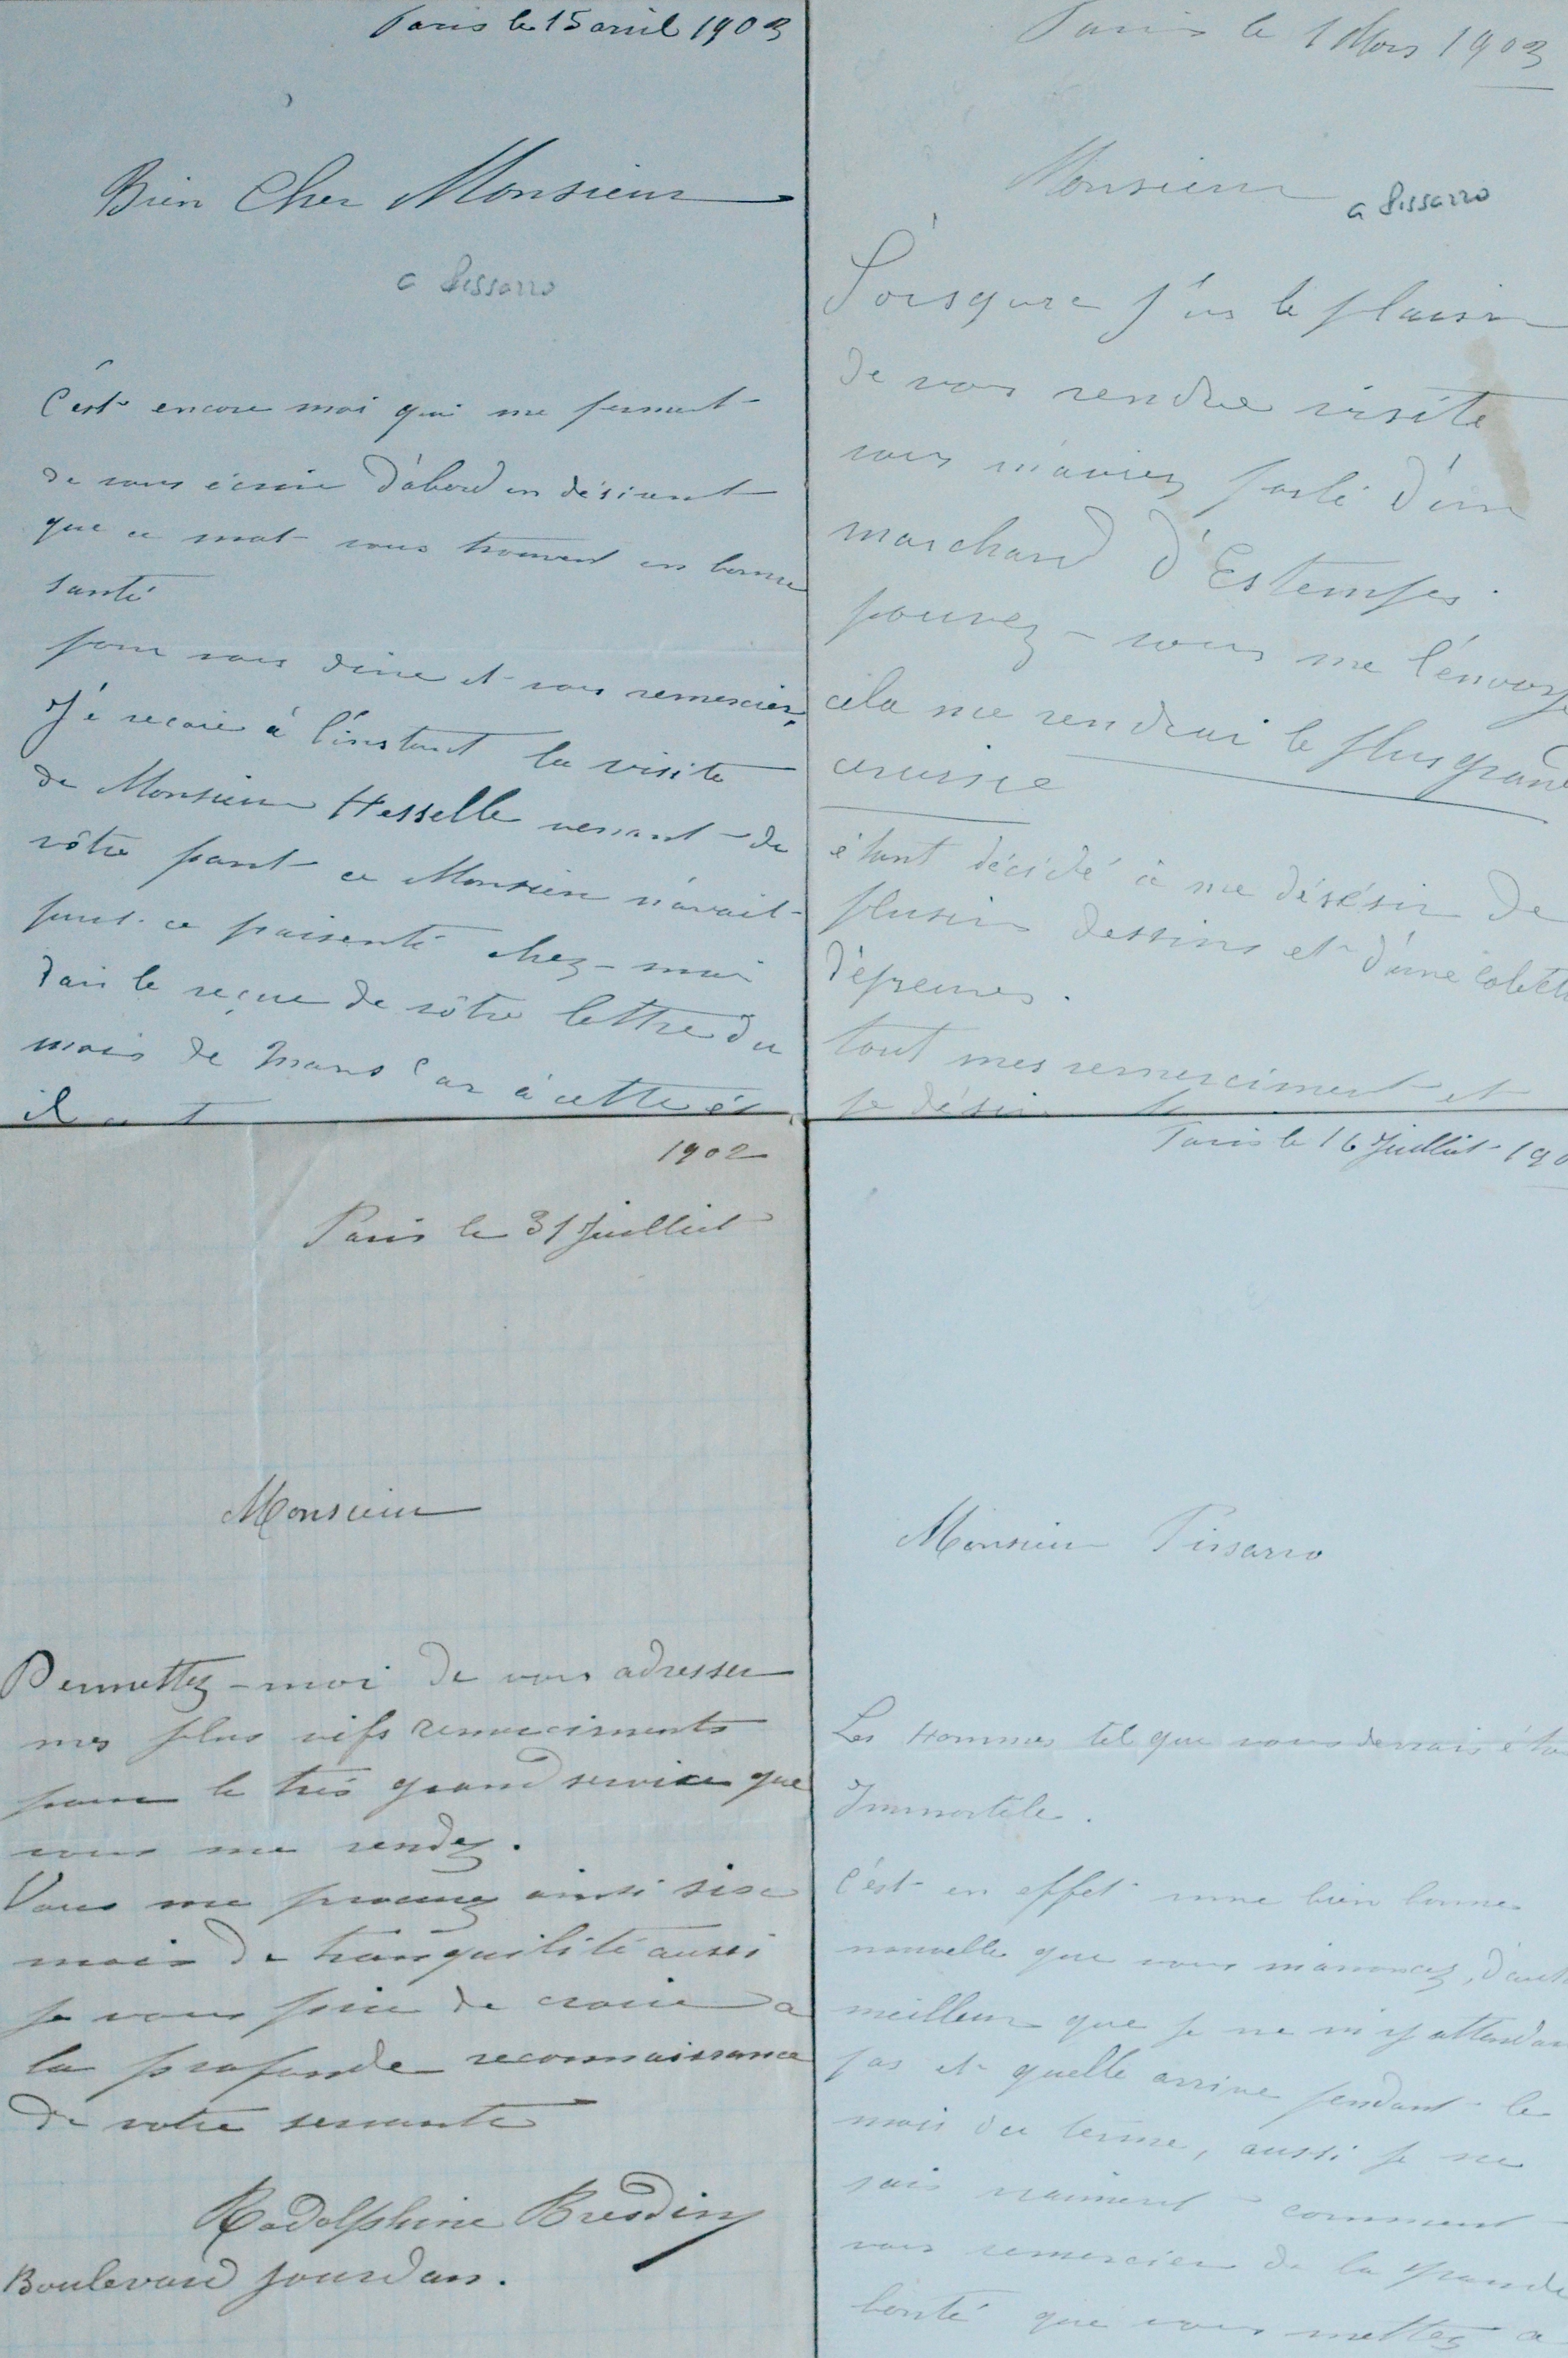 Paris le 15 avril 1903
Bien Cher Monsieur
a Pissarro
C'est encore moi qui me permet
de vous écrire d'abord en désirant
que ce mot vous trouvent en bonne
santé
pour vous dire et vous remercier,
Jé recoie à l'instant la visite
de Monsieur Hesselle venant de
vôtre part ce Monsieur n'avait
point ce paisenté chez-moi
dais le reçue de vôtre lettre du
mois de Mars Car à cette
il
Paris le 1 Mars 1903
Monsieur
a Pissarro
Lorsque j'us le plaisir
de vous rendre visite
vous m'aviez parlé d'un
marchand d'Estempes.
pouvez-vous me l'envoye
cela me rendrai le plus grand
cerviçe
étant décidé à me désésir de
plusieurs dessins et d'une
d'épreuves.
tout mes remerciment et
je
1902
Paris le 31 Juillet
Monsieur
Permettez-moi de vous adresser
mes plus vifs remerciments
pour le très grand service que
vous me rendez.
Vous me procurez ainsi six
mois de tranquilité aussi
je vous prie de croire a
la profonde reconnaissance
de votre servante
Rodolphine Bresdin
Boulevard Jourdan.
Paris le 16 Juillet 190
Monsieur Pissarro
Les Hommes tel que vous devrais
Immortele.
C'est en effet une bien bonne
nouvelle que vous m'annoncez, d'aut
meilleur que je ne m'y attendai
pas et quelle arrive pendant le
mois du terme, aussi je ne
sais vraiment comment
vous remercier de la grande
bonté que vous mettez a